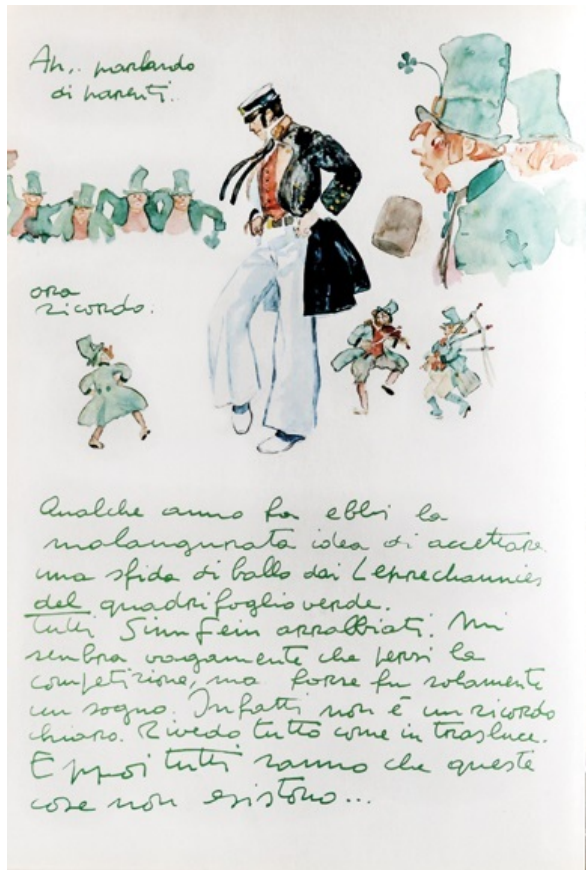 Ah,. parlando
di parenti..
ora
ricordo.
Qualche anno fa ebbi la
malaugurata idea di accettare
una sfida di ballo dai Leprechaunies
del quadrifoglio verde.
Tutti Sinn Fein arrabbiati. Mi
sembra vagamente che persi la
competizione, ma forse fu solamente
un sogno. Infatti non è un ricordo
chiaro. Rivedo tutto come in trasluce.
E ppoi tutti sanno che queste
cose non esistono...